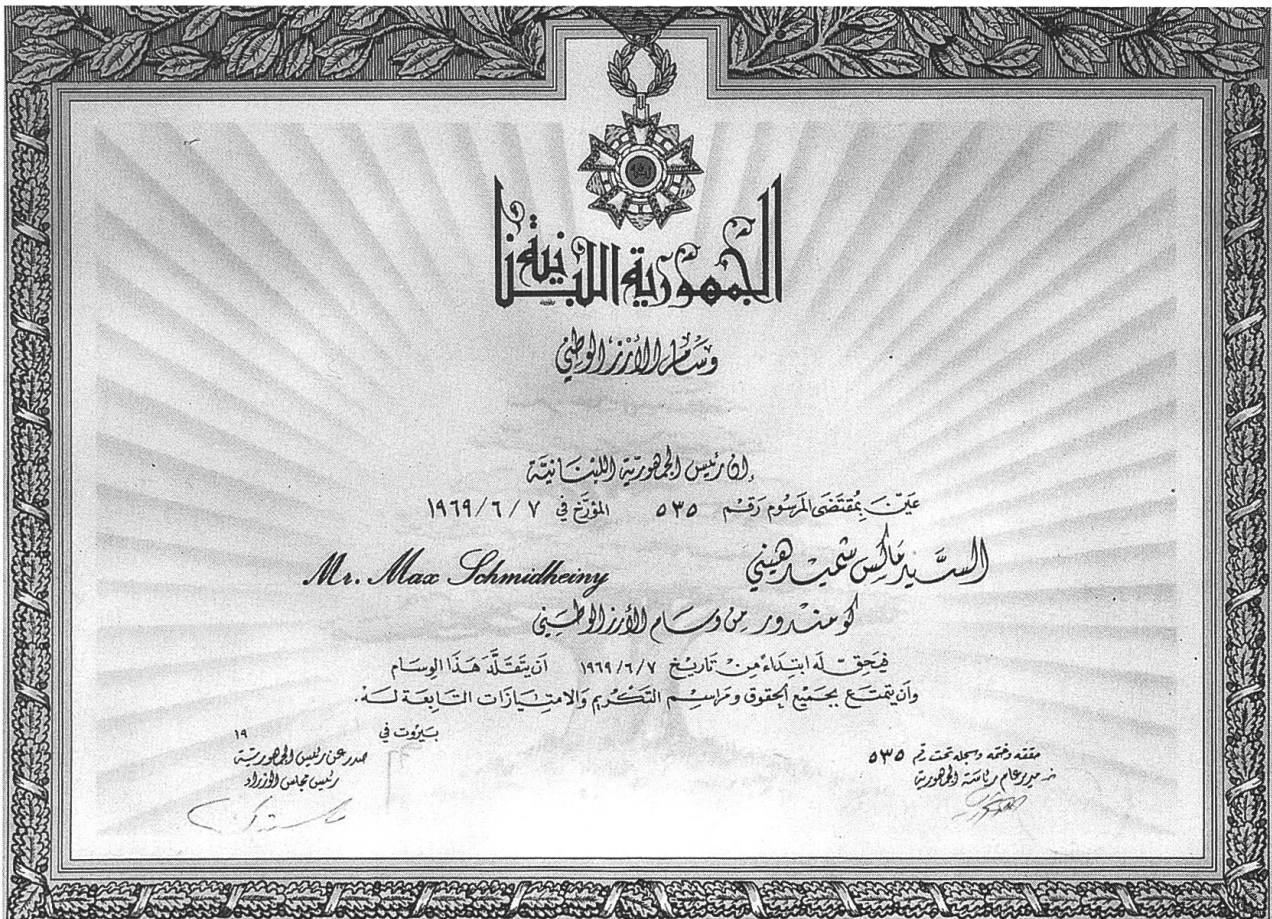 الجمهورية اللبنانية
وسام الأرز الوطني
إن رئيس الجمهورية اللبنانية
عيّن بمقتضى المرسوم رقم ٥٣٥ المؤرخ في ٧ / ٦ / ١٩٦٩
السيد ماكس شميدهيني Mr. Max Schmidheiny
كومندور من وسام الأرز الوطني
فيحق له ابتداءً من تاريخ ٧ / ٦ / ١٩٦٩ أن يتقلّد هذا الوسام
وأن يتمتع بجميع الحقوق ومراسيم التكريم والامتيازات التابعة له.
بيروت في ١٩
صدر عن رئيس الجمهورية
رئيس مجلس الوزراء
حققه وختمه وسجله تحت رقم ٥٣٥
مدير عام رئاسة الجمهورية